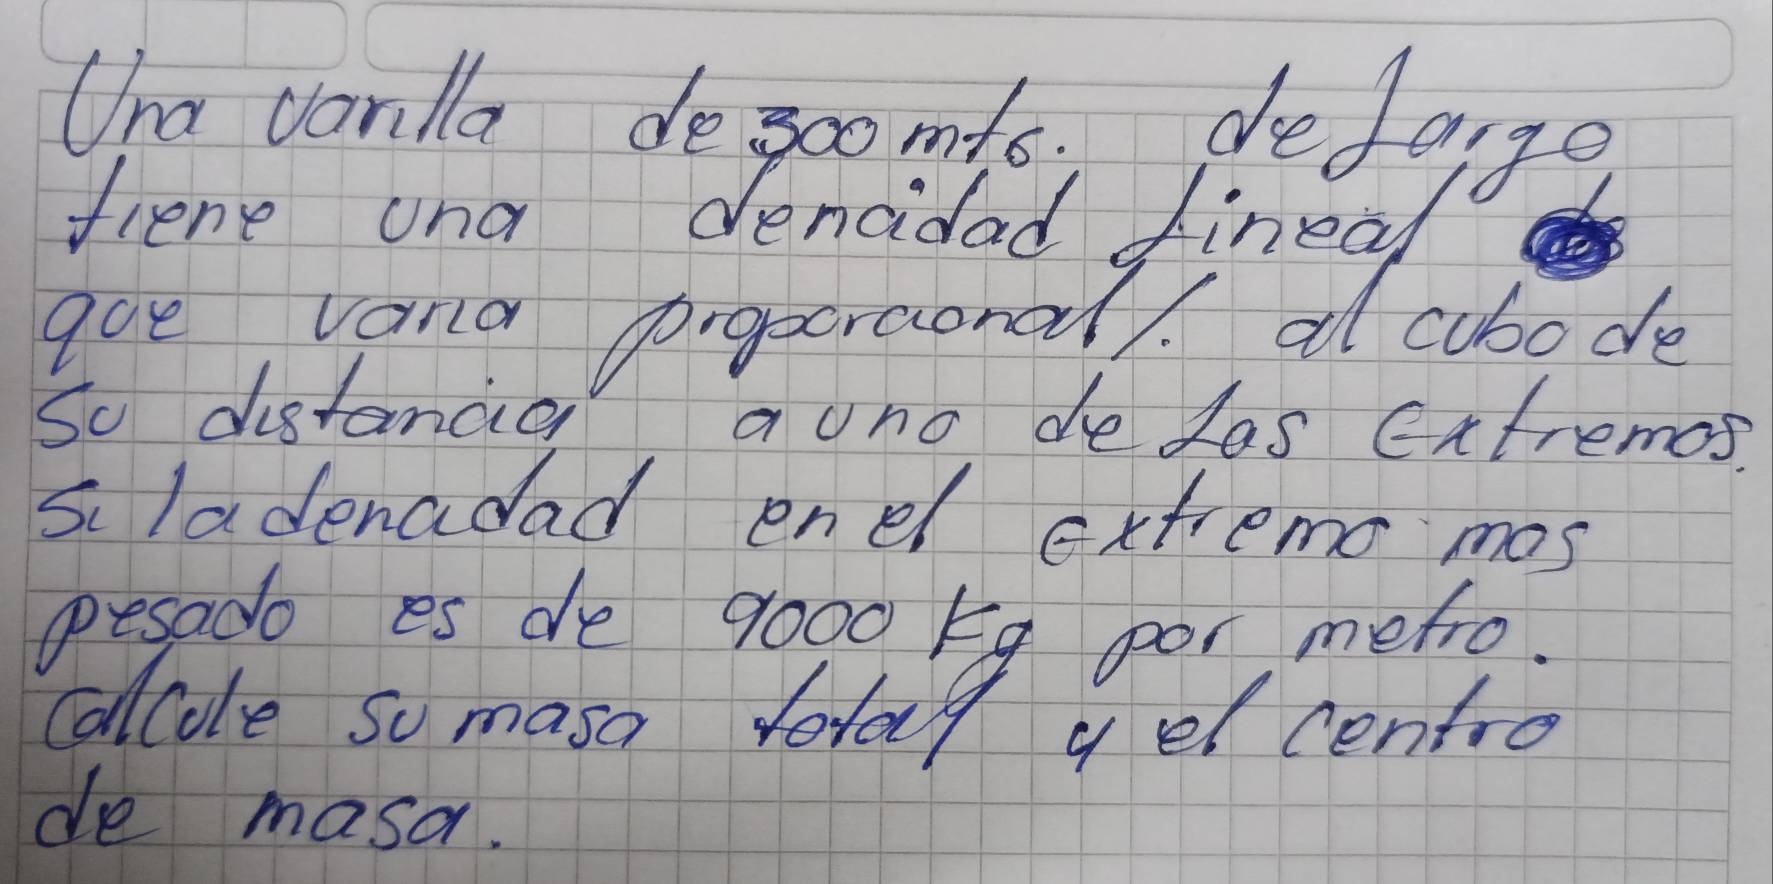 Una varilla de 300 mts. de largo
tiene una dencidad lineal
que varia proporcional/. al cubo de
su distancia a uno de las extremos.
si la dencidad en el extremo mas
pesado es de 9000 kg por metro.
calcule su masa total y el centro
de masa.